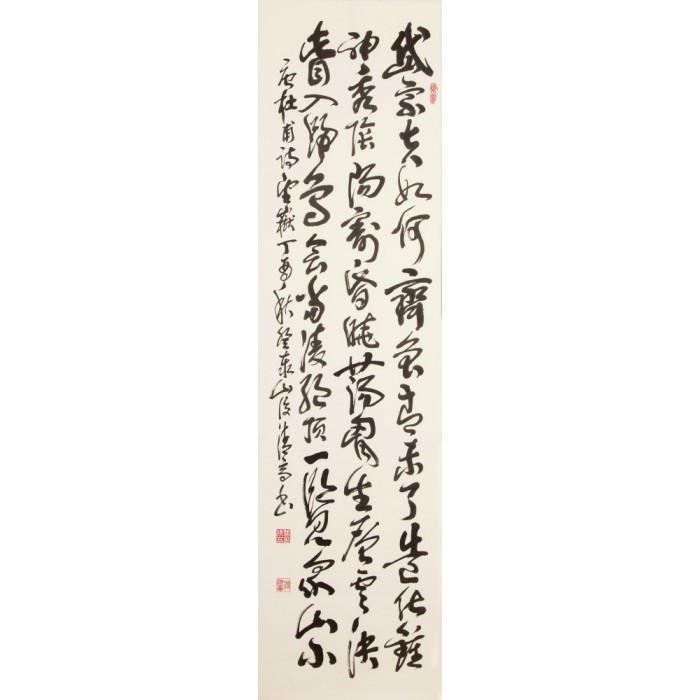 岱宗夫如何齊魯青未了造化鍾
神秀陰陽割昏曉蕩胸生層雲決
眥入歸鳥會當凌絕頂一覽眾山小
唐杜甫詩望嶽丁酉秋登泰山後